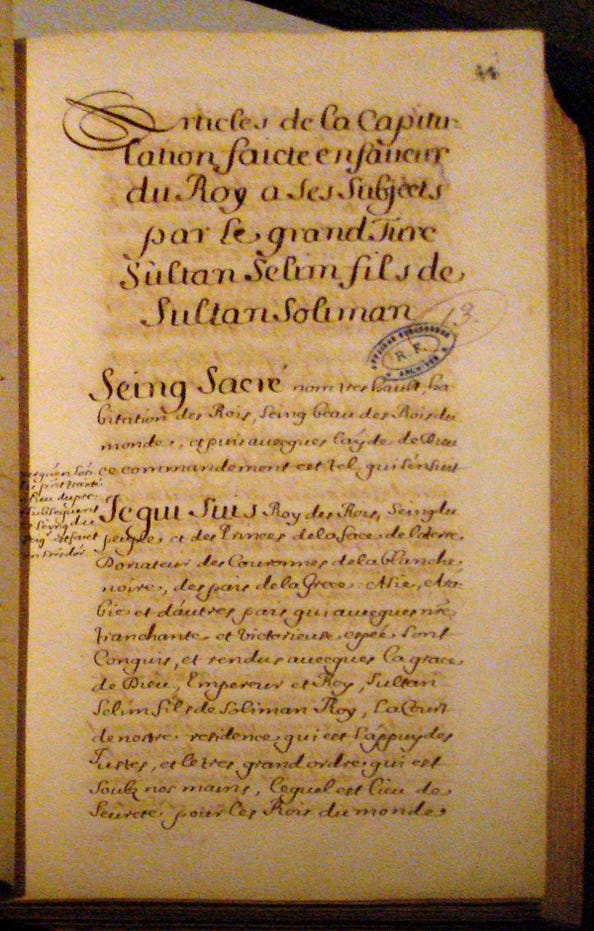 Articles de la Capitu-
lation faicte en faveur
du Roy a ses subjects
par le grand Turc
Sultan Selim fils de
Sultan Soliman
13.
R.F.
ARCHIVES
Seing Sacré nom tres hault, ha
bitation des Rois, seing beau des Rois du
monde, et puis auecques l'ayde de Dieu
ce commandement est tel qui s'ensuit
Je qui suis Roy des Rois, Seing du
peuple et des Princes de la face de la terre
Donateur des Couronnes de la blanche,
noire, des pais de la Grece Asie, Ara
bie et d'autres pais qui auecques nre
tranchante et victorieuse espée sont
Conquis, et rendus auecques la grace
de Dieu, Empereur et Roy, Sultan
Selim fils de Soliman Roy, La Court
de nostre residence qui est l'appuy des
Justes, et le tres grand ordre qui est
soubz nos mains, lequel est lieu de
seureté pour les Rois du monde